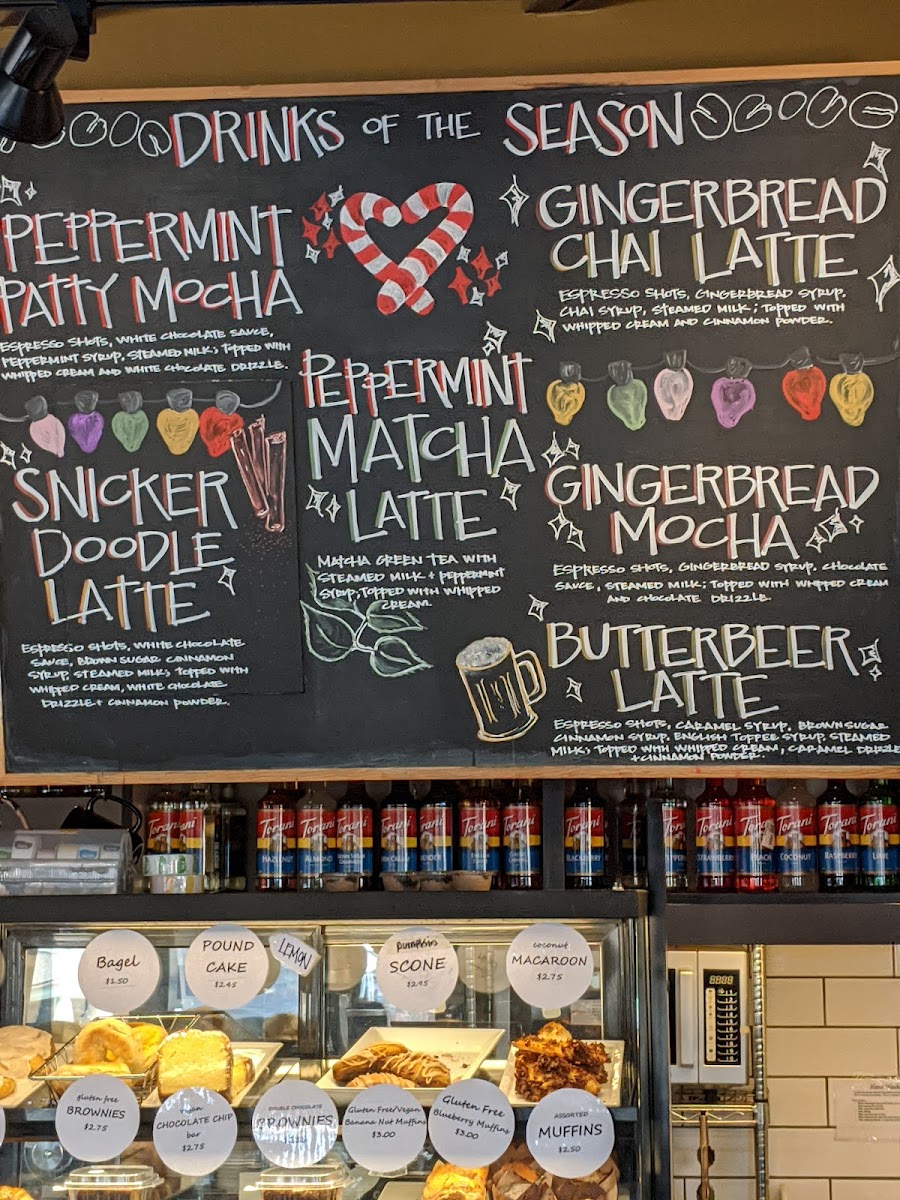 DRINKS OF THE SEASON
PEPPERMINT
PATTY MOCHA
ESPRESSO SHOTS, WHITE CHOCOLATE SAUCE,
PEPPERMINT SYRUP, STEAMED MILK; TOPPED WITH
WHIPPED CREAM AND WHITE CHOCOLATE DRIZZLE.
SNICKER
DOODLE
LATTE
ESPRESSO SHOTS, WHITE CHOCOLATE
SAUCE, BROWN SUGAR CINNAMON
SYRUP, STEAMED MILK; TOPPED WITH
WHIPPED CREAM, WHITE CHOCOLATE
DRIZZLE + CINNAMON POWDER.
PEPPERMINT
MATCHA
LATTE
MATCHA GREEN TEA WITH
STEAMED MILK + PEPPERMINT
SYRUP; TOPPED WITH WHIPPED
CREAM.
GINGERBREAD
CHAI LATTE
ESPRESSO SHOTS, GINGERBREAD SYRUP,
CHAI SYRUP, STEAMED MILK; TOPPED WITH
WHIPPED CREAM AND CINNAMON POWDER.
GINGERBREAD
MOCHA
ESPRESSO SHOTS, GINGERBREAD SYRUP, CHOCOLATE
SAUCE, STEAMED MILK; TOPPED WITH WHIPPED CREAM
AND CHOCOLATE DRIZZLE.
BUTTERBEER
LATTE
ESPRESSO SHOTS, CARAMEL SYRUP, BROWN SUGAR
CINNAMON SYRUP, ENGLISH TOFFEE SYRUP, STEAMED
MILK; TOPPED WITH WHIPPED CREAM, CARAMEL DRIZZLE
+ CINNAMON POWDER.
Torani
Torani
HAZELNUT
Torani
ALMOND
Torani
Torani
Torani
Torani
Torani
Torani
BLACKBERRY
Torani
STRAWBERRY
Torani
PEACH
Torani
COCONUT
Torani
RASPBERRY
Torani
LIME
Bagel
$1.50
POUND
CAKE
$2.45
LEMON
Pumpkin
SCONE
$2.95
coconut
MACAROON
$2.75
gluten free
BROWNIES
$2.75
CHOCOLATE CHIP
bar
$2.75
DOUBLE CHOCOLATE
BROWNIES
Gluten Free/Vegan
Banana Nut Muffins
$3.00
Gluten Free
Blueberry Muffins
$3.00
ASSORTED
MUFFINS
$2.50